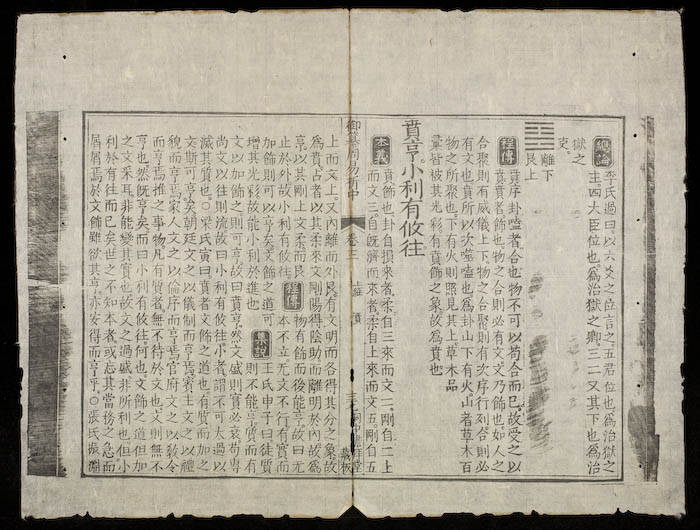 總論 李氏過曰以六爻之位言之五君位也爲治獄之
主四大臣位也爲治獄之卿三二又其下也爲治
獄之
吏
離下
艮上
程傳 賁序卦嗑者合也物不可以苟合而已故受之以
賁賁者飾也物之合則必有文文乃飾也如人之
合聚則有威儀上下物之合聚則有次序行列合則必
有文也賁所以次噬嗑也爲卦山下有火山者草木百
物之所聚也下有火則照見其上草木品
彙皆被其光彩有賁飾之象故爲賁也
賁亨小利有攸往
本義 賁飾也卦自損來者柔自三來而文二剛自二上
而文三自既濟而來者柔自上來而文五剛自五
御纂周易折中 卷三 賁
上而文上又内離而外艮有文明而各得其分之象故
爲賁占者以其柔來文剛陽得陰助而離明於內故爲
亨以其剛上文柔而艮
止於外故小利有攸往
程傳 物有飾而後能亨故曰无
本不立无文不行有實而
加飾則可以亨矣文飾之道可
增其光彩故能小利於進也
集說 王氏申子曰徒質
則不能亨質而有
文以加飾之則可亨故曰賁亨然文盛則實必衰苟專
尚文以往則流故曰小利有攸往小者謂不可太過以
滅其質也○梁氏寅曰賁者文飾之道也有質而加之
文斯可亨矣朝廷文之以儀制而亨焉賓主文之以禮
貌而亨焉家人文之以倫序而亨焉官府文之以敎令
而亨焉推之事物凡有質者無不待於文也文則無不
亨也然旣亨矣而曰小利有攸往何也文飾之道但加
之文采耳非能變其實也故文之過盛非所利也但小
利於有往而已矣世之不知本者或忘其當務之急而
屑屑焉於文飾雖欲其亨亦安得而亨乎○張氏振淵